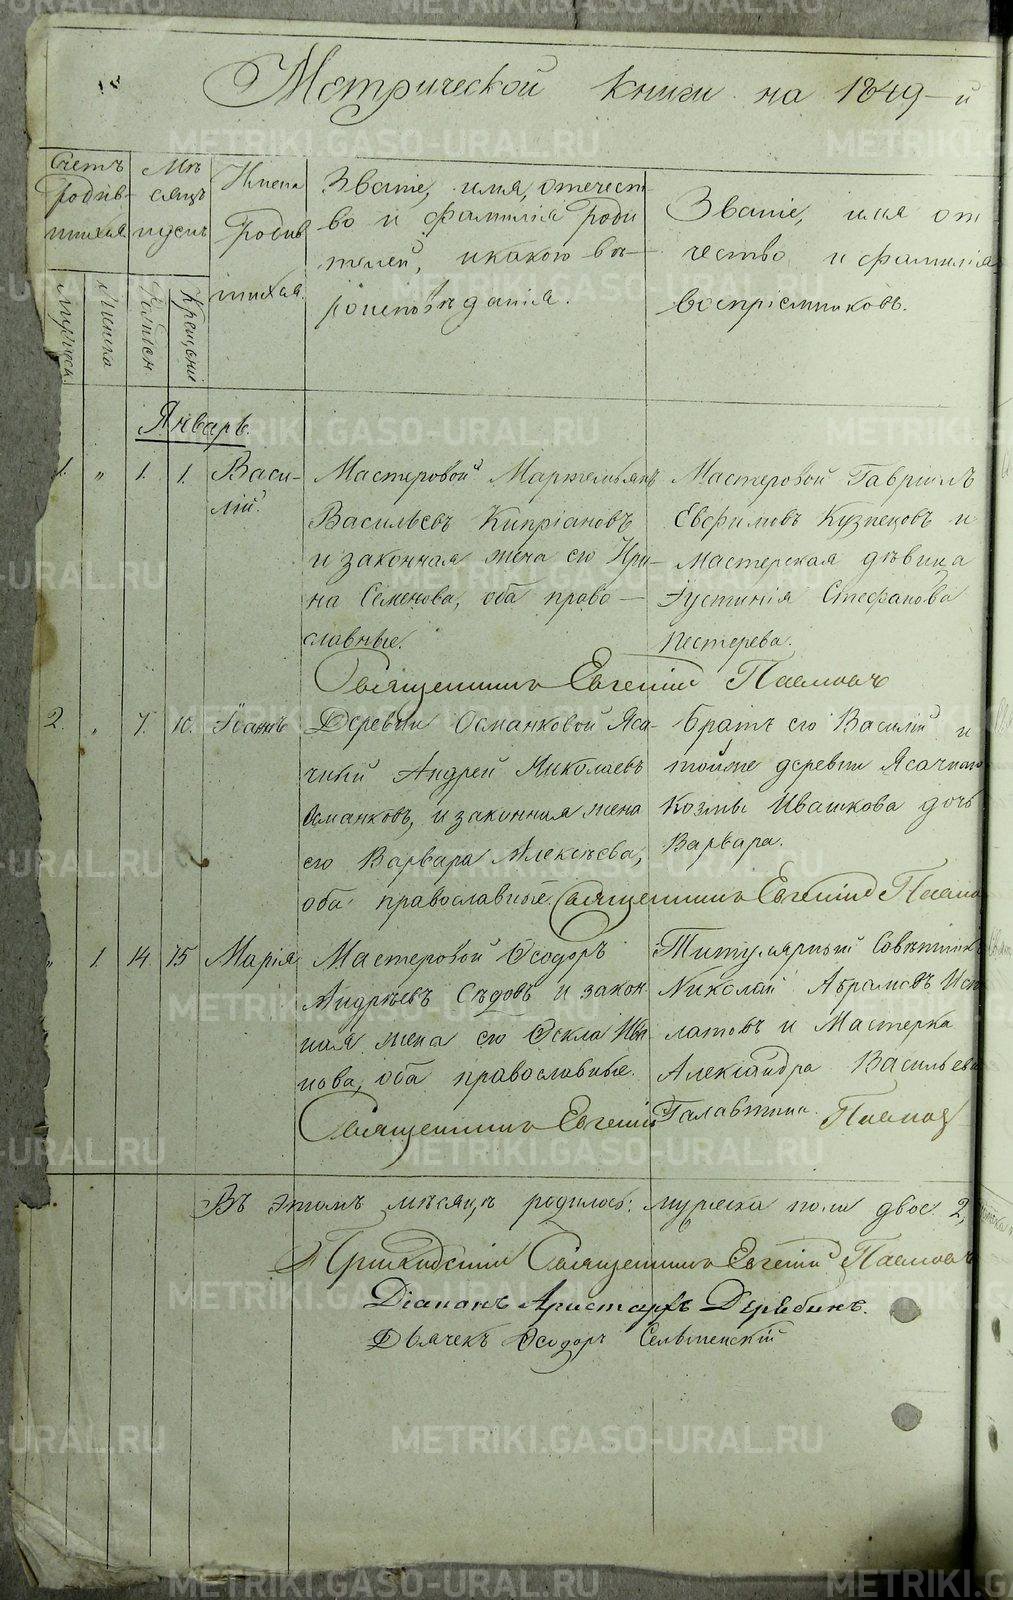 Метрической Книги на 1849-й
Счетъ родив-шихся
Мѣсяцъ
Имена родившихся.
Званіе, имя, отчест-
во и фамилія роди
телей, и какого вѣ-
роисповѣданія.
Званіе, имя от
чество и фамилія
воспріемниковъ.
Мужеска
Женска
Рожден
Крещені
Январь.
1. " 1. 1. Васи-
лій.
Мастеровой Мартемьянъ
Васильевъ Кипріановъ
и законная жена его Ири-
на Семенова, оба право-
славные.
Мастеровой Гавріилъ
Евфимовъ Кузнецовъ и
Мастерская дѣвица
Іустинія Стефанова
Пестерева.
Священникъ Евгеній
2. " 7. 10. Іоаннъ
Деревни Османковой Яса-
чный Андрей Николаевъ
Османковъ, и законная жена
его Варвара Алексѣева,
оба православные.
Братъ его Василій и
тойже деревни Ясачнаго
Козмы Ивашкова дочь
Варвара.
Священникъ Евгеній
" 1. 14. 15 Марія
Мастеровой Ѳеодоръ
Андрѣевъ Сѣдовъ и закон-
ная жена его Ѳекла Ива-
нова, оба православные.
Титулярный Совѣтникъ
Николай Абрамовъ
и Мастерка
Александра Васильева
Священникъ Евгеній
Въ этомъ мѣсяцѣ родилось: мужеска пола двое 2,
Приходскій Священникъ Евгеній
Діаконъ Аристархъ Дерябинъ.
Дьячекъ Ѳеодоръ
METRIKI.GASO-URAL.RU